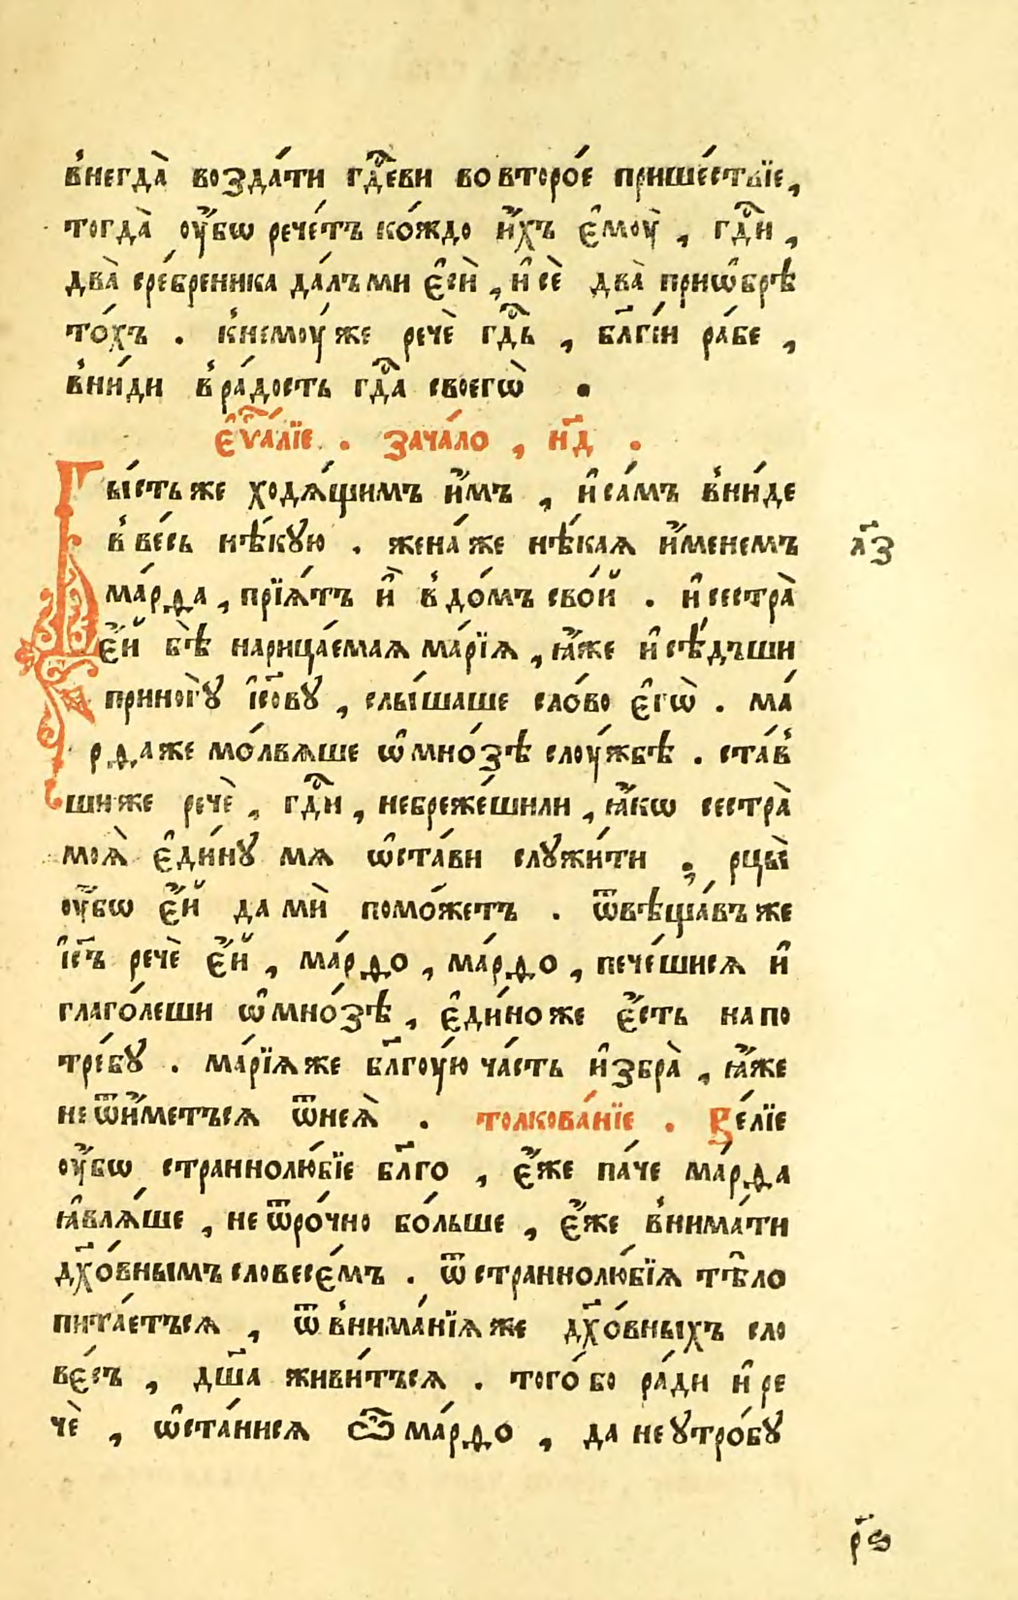 в̾негда̀ возда́ти гд҇еви во второ́е прише́ствїе,
тогда̀ ᲂу҆́бѡ рече́тъ ко́ждо и҆́хъ є҆моу̀, гд҇и,
два̀ сре́бреника да́лъ ми є҆сѝ, и҆ сѐ два̀ приѡ҆брѣ
то́хъ. к̾немоу́ же речѐ гд҇ь, бл҃гі́и ра́бе,
в̾ни́ди в̾ра́дость гд҇а своегѡ̀.
є҆ѵⷢ҇а́лїе. зача́ло, н҃д.
Бы́сть же ходѧ́щимъ и҆́мъ, и҆ са́мъ в̾ни́де
в̾ ве́сь нѣ́кꙋю. жена́ же нѣ́каѧ и҆́менемъ
л҃з
ма́рѳа, прїѧ́тъ и҆̀ в̾до́мъ сво́й. и҆ сестра̀
є҆́й бѣ̀ нарица́емаѧ марі́ѧ, ꙗ҆́же и҆ сѣ́дъши
при но́гꙋ і҆с҃овꙋ, слы́шаше сло́во є҆гѡ̀. ма́
рѳа же мо́лвѧше ѡ҆ мно́зѣ слоу́жбѣ. ста́в̾
ши же речѐ, гд҇и, небреже́ши ли, ꙗ҆́кѡ сестра̀
моѧ̀ є҆ди́нꙋ мѧ ѡ҆ста́ви слꙋжи́ти; рцы̀
ᲂу҆́бѡ є҆́й да мѝ помо́жетъ. ѿвѣща́въ же
і҆с҃ъ речѐ є҆́й, ма́рѳо, ма́рѳо, пече́шисѧ и҆̀
глаго́леши ѡ҆ мно́зѣ, є҆ди́но же є҆́сть на по
тре́бꙋ. марі́ѧ же бл҃гоу́ю ча́сть и҆збра̀, ꙗ҆́же
не ѿи́метъсѧ ѿ неѧ̀. толкова́нїе. Ве́лїе
ᲂу҆́бѡ страннолю́бїе бл҃го, є҆́же па́че ма́рѳа
ꙗ҆влѧ́ше, не ѿро́чно бо́льше, є҆́же в̾нима́ти
дх҃о́внымъ словесє́мъ. ѿ страннолю́бїѧ тѣ́ло
пита́етъсѧ, ѿ в̾нима́нїѧ же дх҃о́вныхъ сло
ве́съ, дш҃а живи́тъсѧ. того́ бо ра́ди и҆ ре
чѐ, ѡ҆ста́нисѧ ѽ ма́рѳо, да не ᲂутро́бꙋ
р҃ѕ